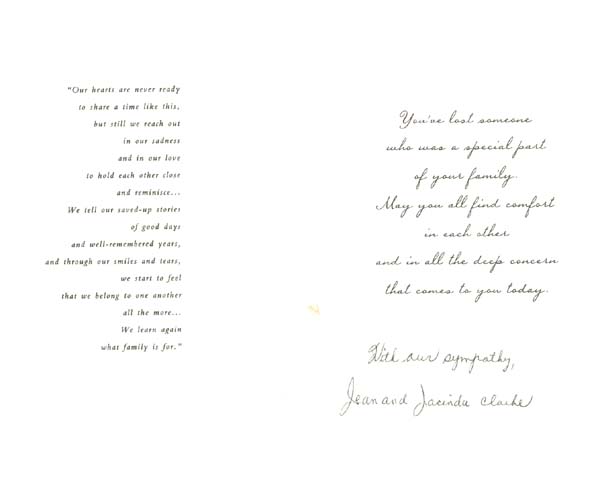 "Our hearts are never ready
to share a time like this,
but still we reach out
in our sadness
and in our love
to hold each other close
and reminisce...
We tell our saved-up stories
of good days
and well-remembered years,
and through our smiles and tears,
we start to feel
that we belong to one another
all the more...
We learn again
what family is for."
You've lost someone
who was a special part
of your family.
May you all find comfort
in each other
and in all the deep concern
that comes to you today.
With our sympathy,
Jean and Jacinda Clarke